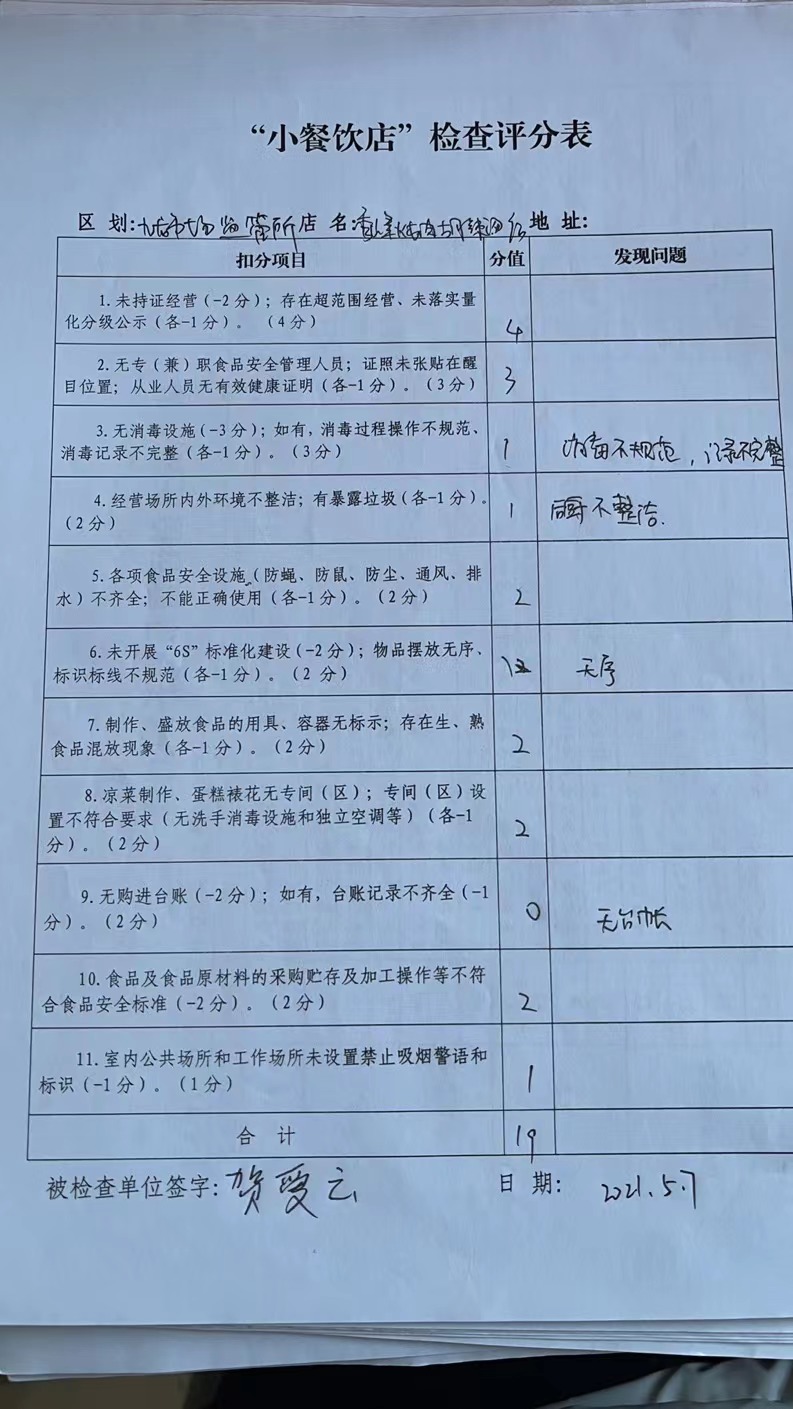 “小餐饮店”检查评分表
区 划: 市场监管所 店 名: 地 址:
扣分项目 分值 发现问题
1.未持证经营(-2分);存在超范围经营、未落实量
化分级公示(各-1分)。(4分) 4
2.无专(兼)职食品安全管理人员;证照未张贴在醒
目位置;从业人员无有效健康证明(各-1分)。(3分) 3
3.无消毒设施(-3分);如有,消毒过程操作不规范、
消毒记录不完整(各-1分)。(3分) 1 消毒不规范,记录不完整
4.经营场所内外环境不整洁;有暴露垃圾(各-1分)。
(2分) 1 后厨不整洁.
5.各项食品安全设施(防蝇、防鼠、防尘、通风、排
水)不齐全;不能正确使用(各-1分)。(2分) 2
6.未开展“6S”标准化建设(-2分);物品摆放无序、
标识标线不规范(各-1分)。(2 分) 1 无序
7.制作、盛放食品的用具、容器无标示;存在生、熟
食品混放现象(各-1分)。(2分) 2
8.凉菜制作、蛋糕裱花无专间(区);专间(区)设
置不符合要求(无洗手消毒设施和独立空调等)(各-1
分)。(2分) 2
9.无购进台账(-2分);如有,台账记录不齐全(-1
分)。(2分) 0 无台帐
10.食品及食品原材料的采购贮存及加工操作等不符
合食品安全标准(-2分)。(2分) 2
11.室内公共场所和工作场所未设置禁止吸烟警语和
标识(-1分)。(1分) 1
合 计 19
被检查单位签字: 贺爱云 日 期: 2021.5.7